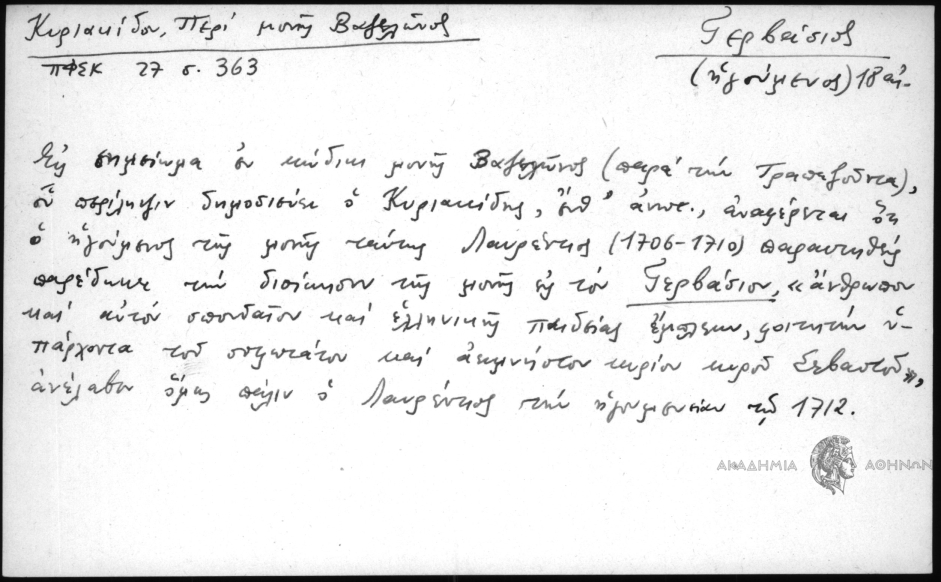 Κυριακίδου, Περί μονής Βαζελῶνος
Γερβάσιος
ΠΦΕΚ 27 σ. 363
(ἡγούμενος) 18 αἰ.
Εἰς σημείωμα ἐν κώδικι μονῆς Βαζελῶνος (παρά τήν Τραπεζοῦντα),
οὗ περίληψιν δημοσιεύει ὁ Κυριακίδης, ἔνθ' ἀνωτ., ἀναφέρεται ὅτι
ὁ ἡγούμενος τῆς μονῆς ταύτης Λαυρέντιος (1706-1710) παραιτηθείς
παρέδωκε τήν διοίκησιν τῆς μονῆς εἰς τόν Γερβάσιον, «ἄνθρωπον
καί αὐτόν σπουδαῖον καί ἑλληνικῆς παιδείας ἔμπλεων, φοιτητήν ὑ-
πάρχοντα τοῦ σοφωτάτου καί ἀειμνήστου κυρίου κυροῦ Σεβαστοῦ»,
ἀνέλαβεν ὅμως πάλιν ὁ Λαυρέντιος τήν ἡγουμενείαν τῷ 1712.
ΑΚΑΔΗΜΙΑ ΑΘΗΝΩΝ